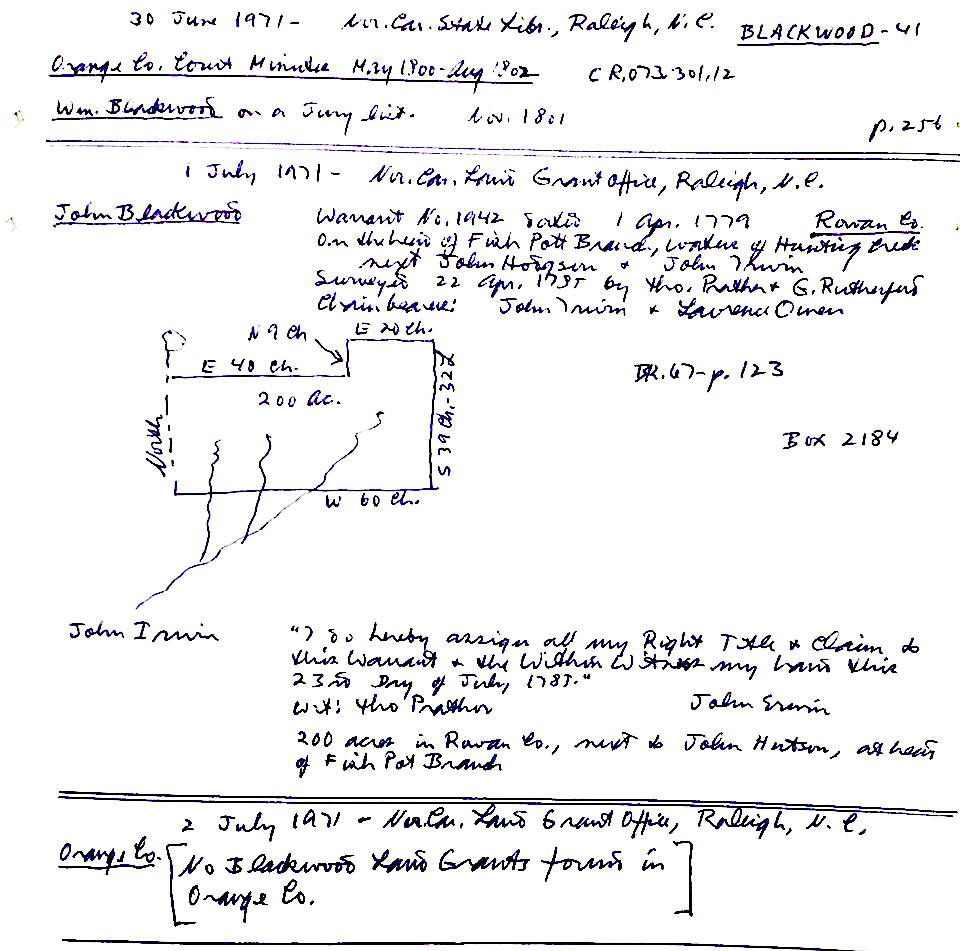 30 June 1971 - Nor. Car. State Libr., Raleigh, N.C. BLACKWOOD - 41
Orange Co. Court Minutes May 1800-Aug 1802 CR.073.301.12
Wm. Blackwood on a Jury list. Nov. 1801 p. 256
1 July 1971 - Nor. Car. Land Grant Office, Raleigh, N.C.
John Blackwood Warrant No. 1942 dated 1 Apr. 1779 Rowan Co.
On the head of Fish Pott Brand., waters of Hunting Creek
next John Hodgson & John Irwin
Surveyed 22 Apr. 1785 by Tho. Prather & G. Rutherford
Chain bearers: John Irwin & Lawrence Owen
N 9 Ch E 20 Ch.
E 40 Ch.
200 Ac.
BK. 67 - p. 123
North
S 39 Ch. - 32
Box 2184
W 60 Ch.
John Irwin "I do hereby assign all my Right Title & Claim to
this Warrant & the Within Witness my hand this
23rd Day of July 1785."
Wit: Tho Prather John Erwin
200 acres in Rowan Co., next to John Hutson, at head
of Fish Pot Branch
2 July 1971 - Nor. Car. Land Grant Office, Raleigh, N.C.
Orange Co. [No Blackwood Land Grants found in
Orange Co.]